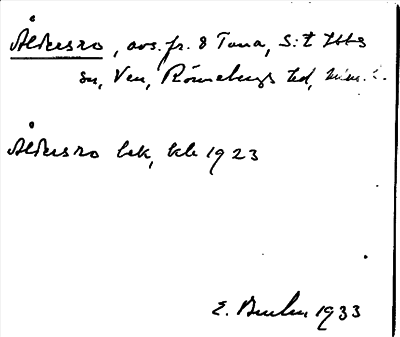 Åldersro, avs. fr. 8 Tuna, S:t Ibbs
sn, Ven, Rönnebergs hd, Mlm. l.
Åldersro lek, kle 1923
E. 1933